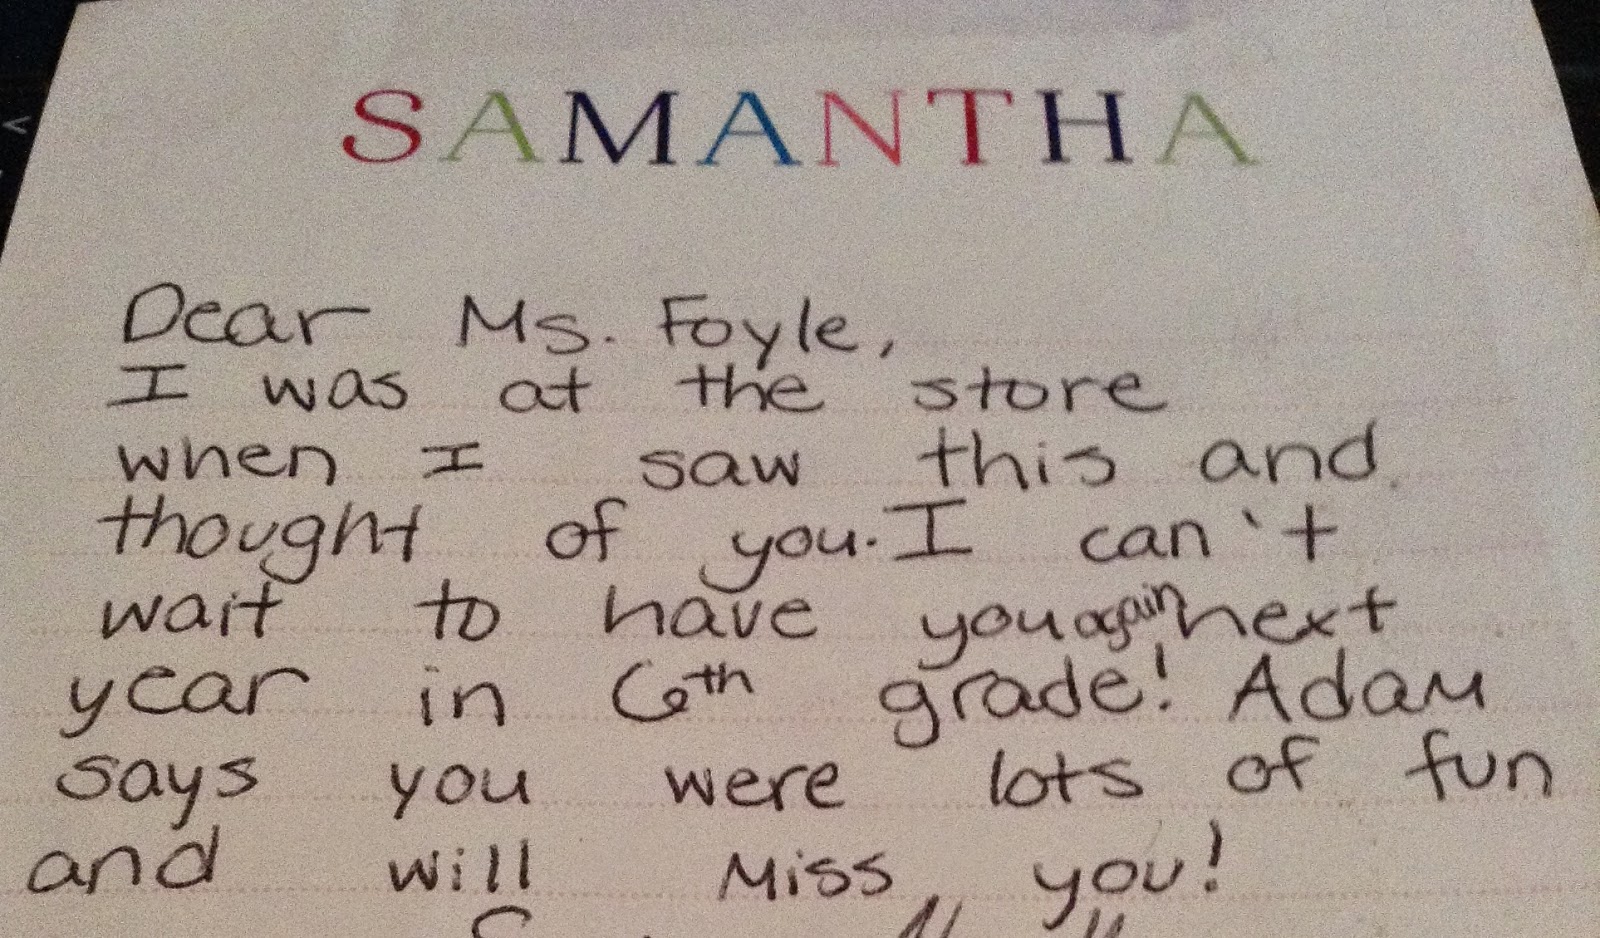 SAMANTHA
Dear Ms. Foyle,
I was at the store
when I saw this and
thought of you. I can't
wait to have you again next
year in 6th grade! Adam
says you were lots of fun
and will miss you!